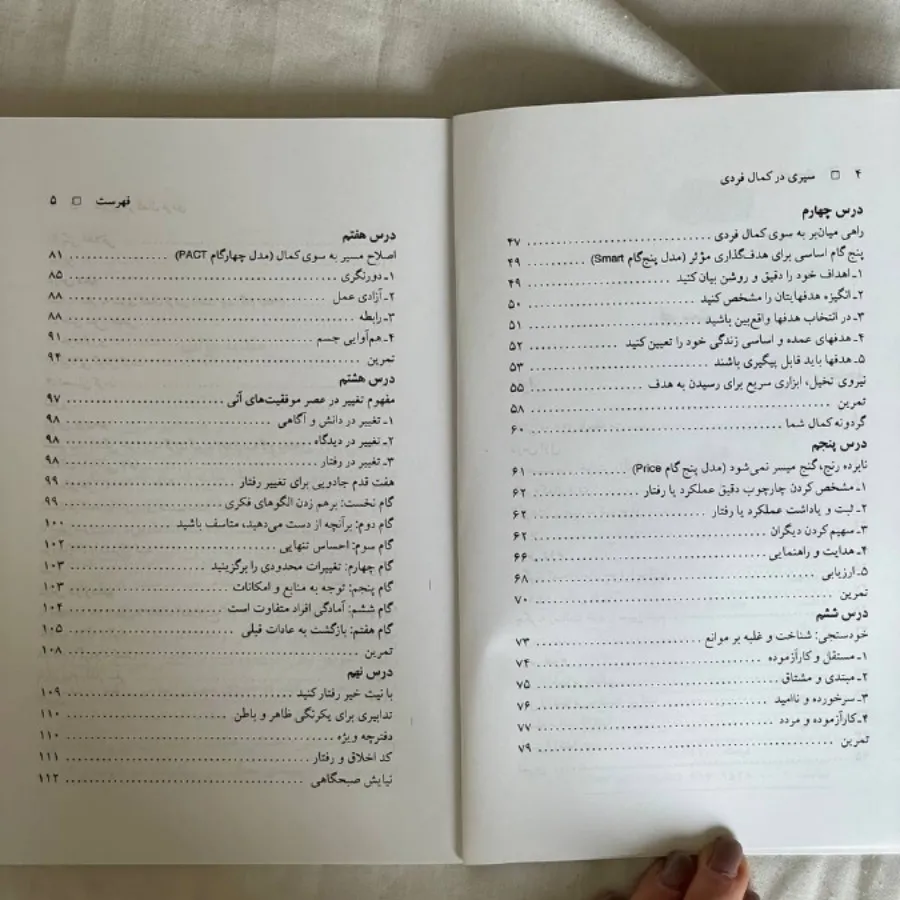 ۴ □ سیری در کمال فردی
درس چهارم
راهی میان‌بر به سوی کمال فردی ........................ ۴۷
پنج گام اساسی برای هدف‌گذاری مؤثر (مدل پنج‌گام Smart) ........ ۴۹
۱ـ اهداف خود را دقیق و روشن بیان کنید ........................ ۴۹
۲ـ انگیزه هدفهایتان را مشخص کنید ........................ ۵۰
۳ـ در انتخاب هدفها واقع‌بین باشید ........................ ۵۱
۴ـ هدفهای عمده و اساسی زندگی خود را تعیین کنید ............ ۵۲
۵ـ هدفها باید قابل پیگیری باشند ........................ ۵۳
نیروی تخیل، ابزاری سریع برای رسیدن به هدف ................ ۵۵
تمرین ........................ ۵۸
گردونه کمال شما ........................ ۶۰
درس پنجم
نابرده رنج، گنج میسر نمی‌شود (مدل پنج گام Price) ............ ۶۱
۱ـ مشخص کردن چارچوب دقیق عملکرد یا رفتار ................ ۶۲
۲ـ ثبت و یاداشت عملکرد یا رفتار ........................ ۶۲
۳ـ سهیم کردن دیگران ........................ ۶۲
۴ـ هدایت و راهنمایی ........................ ۶۶
۵ـ ارزیابی ........................ ۶۸
تمرین ........................ ۷۰
درس ششم
خودسنجی: شناخت و غلبه بر موانع ........................ ۷۳
۱ـ مستقل و کارآزموده ........................ ۷۴
۲ـ مبتدی و مشتاق ........................ ۷۵
۳ـ سرخورده و ناامید ........................ ۷۶
۴ـ کارآزموده و مردد ........................ ۷۷
تمرین ........................ ۷۹
فهرست □ ۵
درس هفتم
اصلاح مسیر به سوی کمال (مدل چهارگام PACT) ............ ۸۱
۱ـ دورنگری ........................ ۸۵
۲ـ آزادی عمل ........................ ۸۸
۳ـ رابطه ........................ ۸۸
۴ـ هم‌آوایی جسم ........................ ۹۱
تمرین ........................ ۹۴
درس هشتم
مفهوم تغییر در عصر موفقیت‌های آنی ........................ ۹۷
۱ـ تغییر در دانش و آگاهی ........................ ۹۸
۲ـ تغییر در دیدگاه ........................ ۹۸
۳ـ تغییر در رفتار ........................ ۹۸
هفت قدم جادویی برای تغییر رفتار ........................ ۹۹
گام نخست: برهم زدن الگوهای فکری ........................ ۹۹
گام دوم: برآنچه از دست می‌دهید، متاسف باشید ............ ۱۰۰
گام سوم: احساس تنهایی ........................ ۱۰۲
گام چهارم: تغییرات محدودی را برگزینید ................ ۱۰۳
گام پنجم: توجه به منابع و امکانات ........................ ۱۰۳
گام ششم: آمادگی افراد متفاوت است ........................ ۱۰۴
گام هفتم: بازگشت به عادات قبلی ........................ ۱۰۵
تمرین ........................ ۱۰۸
درس نهم
با نیت خیر رفتار کنید ........................ ۱۰۹
تدابیری برای یکرنگی ظاهر و باطن ........................ ۱۱۰
دفترچه ویژه ........................ ۱۱۰
کد اخلاق و رفتار ........................ ۱۱۱
نیایش صبحگاهی ........................ ۱۱۲